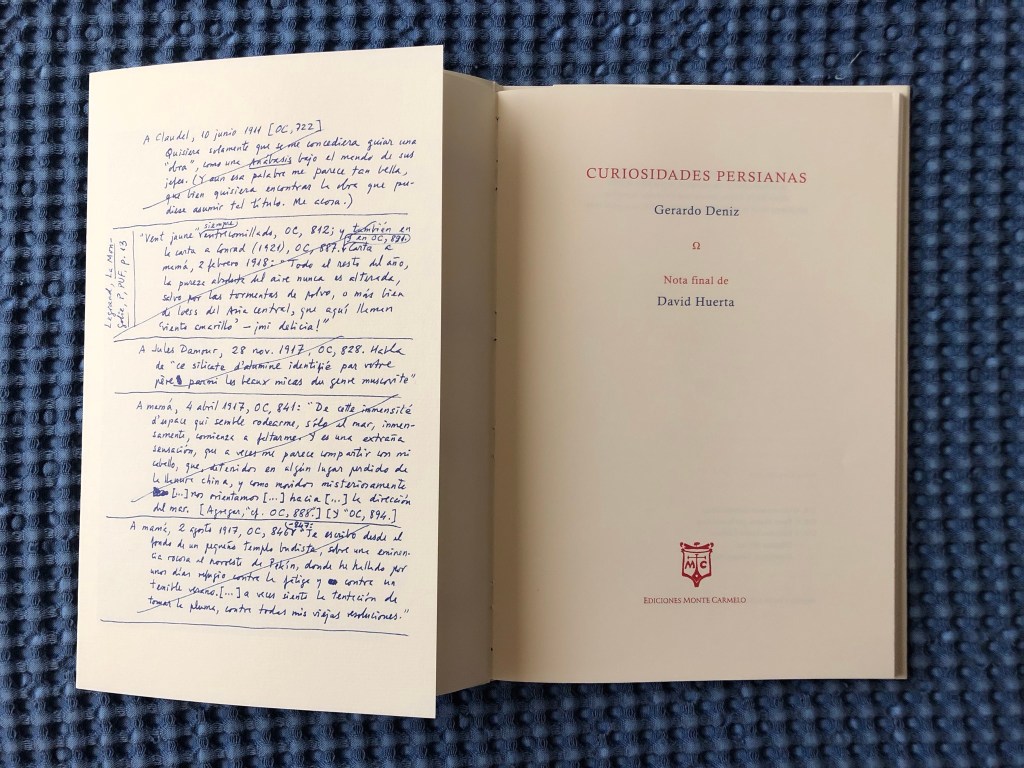 A Claudel, 10 junio 1911 [OC, 722]
Quisiera solamente que se me concediera guiar una
"obra", como una Anábasis bajo el mando de sus
jefes. (Y aun esa palabra me parece tan bella,
que bien quisiera encontrar la obra que pu-
diese asumir tal título. Me acosa.)
Legrand, La Mon-
golie, P, PUF, p. 13
siempre
"Vent jaune" entrecomillado, OC, 812; y también en
y en OC, 891.
la carta a Conrad (1921), OC, 887. Carta a
mamá, 2 febrero 1918: "Todo el resto del año,
la pureza absoluta del aire nunca es alterada,
salvo por las tormentas de polvo, o más bien
de loess del Asia central, que aquí llaman
'viento amarillo' – ¡mi delicia!"
A Jules Damour, 28 nov. 1917, OC, 828. Habla
de "ce silicate d'alumine identifié par votre
père parmi les beaux micas du genre muscovite"
A mamá, 4 abril 1917, OC, 841: "De cette immensité
d'espace qui semble rodearme, sólo el mar, inmen-
samente, comienza a faltarme. Y es una extraña
sensación, que a veces me parece compartir con mi
caballo, que, detenidos en algún lugar perdido de
la llanura china, y como movidos misteriosamente
[...] nos orientamos [...] hacia [...] la dirección
del mar. [Agregar, "cf. OC, 888.] [Y "OC, 894.]
-847:
A mamá, 2 agosto 1917, OC, 846 "Te escribo desde el
fondo de un pequeño templo budista, sobre una eminen-
cia rocosa al noroeste de Pekín, donde he hallado por
unos días refugio contra la fatiga y contra un
terrible verano. [...] a veces siento la tentación de
tomar la pluma, contra todas mis viejas resoluciones."
CURIOSIDADES PERSIANAS
Gerardo Deniz
Ω
Nota final de
David Huerta
M C
EDICIONES MONTE CARMELO